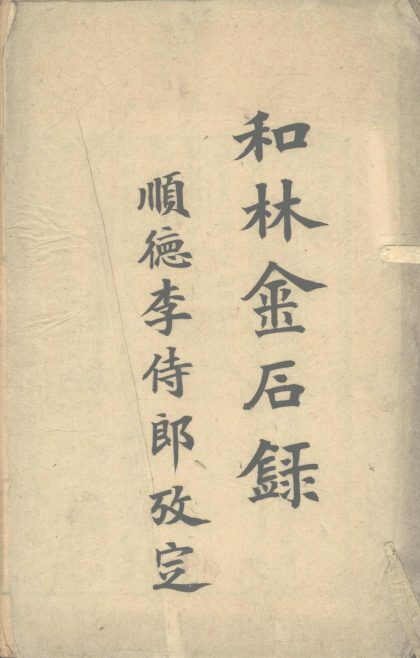 和林金石録
順德李侍郎攷定